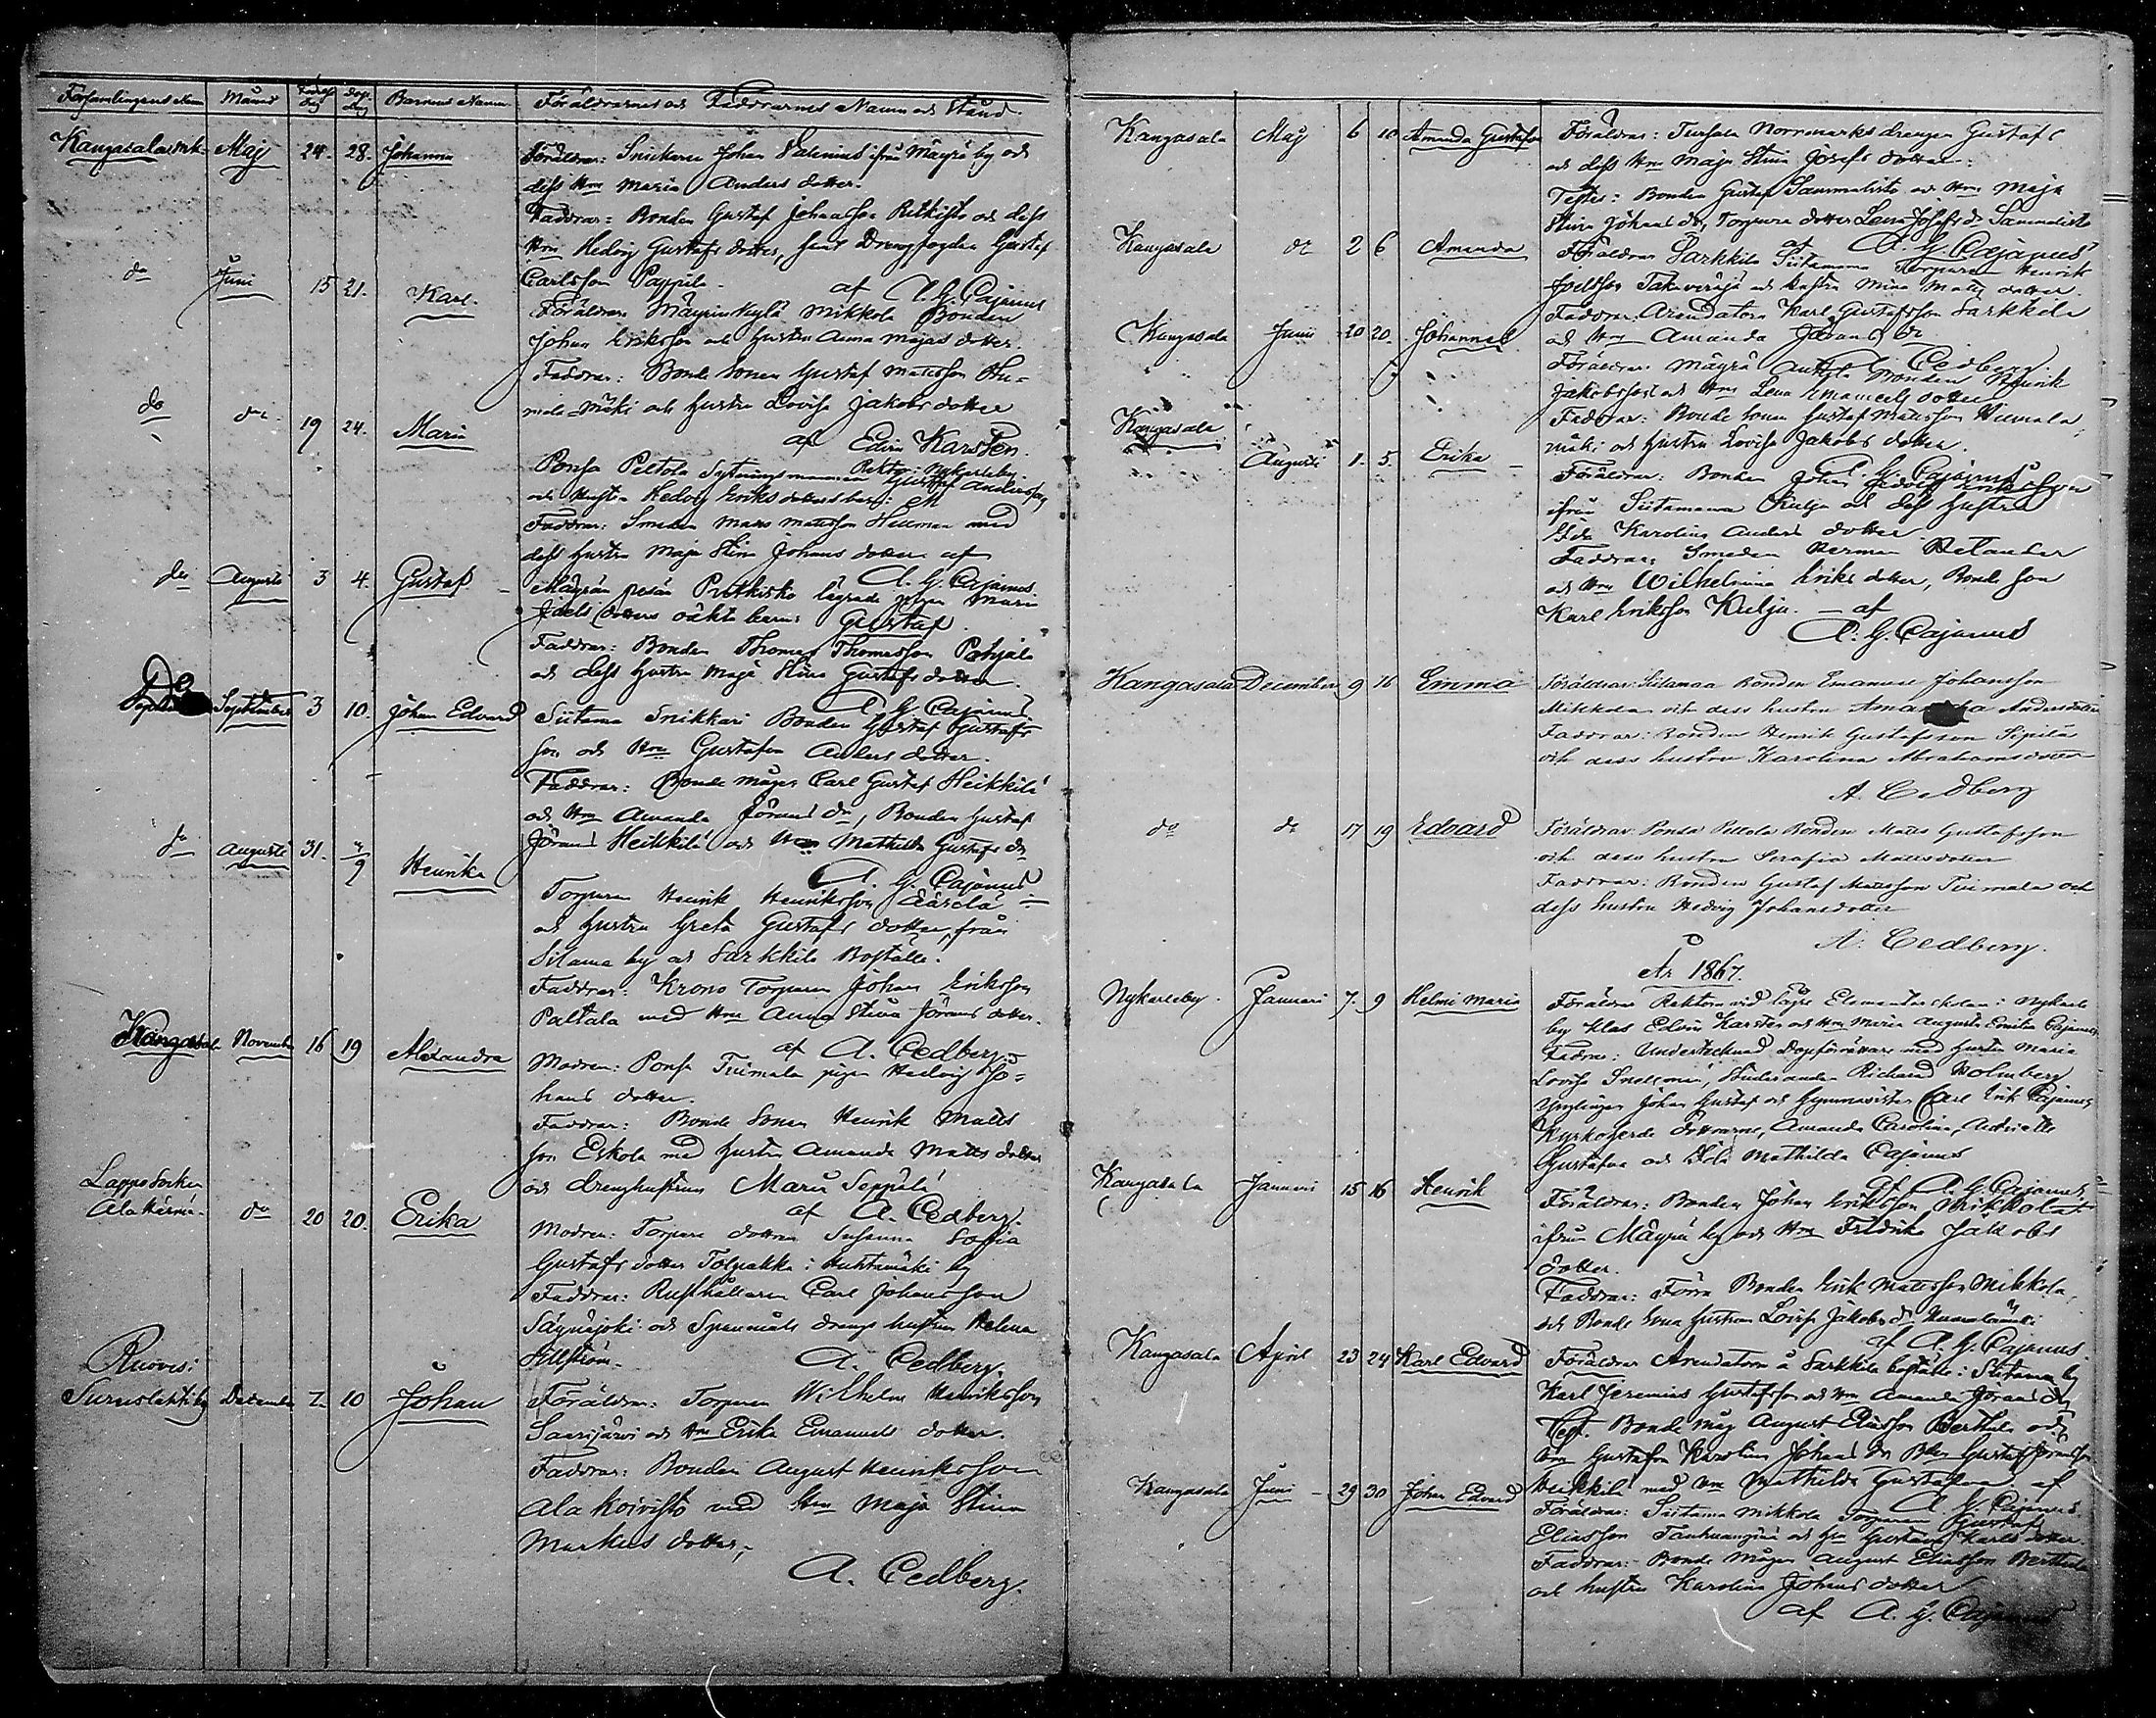 Församlingens Namn Månad Födelse dag Dop. dag Barnens Namn Föräldrarnes och Faddrarnes Namn och Stånd.
Kangasala Maj 24. 28. Johanna Föräldrar: Snickaren Johan ifrån Mäyrä by och
dess Hru Maria Anders dotter.
Faddrar: Bonden Gustaf Johansson och dess
Hru Hedvig Gustafs dotter, samt Drengfogden Gustaf
Carlsson Pappila. af A. G. Cajanus
do Juni 15 21. Karl. Föräldrar Mikkola Bonden
Johan Eriksson och hustru Anna Majas dotter.
Faddrar: Bonde Sonen Gustaf Mattsson Hu=
mala-mäki och hustru Lovisa Jakobs dotter
af Edvin Karsten.
Rektor i Nykarleby
do do 19 24. Maria Ponsa Peltola Sytningsmannen Gustaf Andersson
och Hustru Hedvig Eriks dotters barn:
Faddrar: Smeden Matts Mattsson Hellman med
dess hustru Maja Stina Johans dotter af
A. G. Cajanus
do Augusti 3 4. Gustaf pigan Maria
Joels dotters oäkta barn: Gustaf
Faddrar: Bonden Thomas Thomasson Pohjala
och dess hustru Maja Stina Gustafs dotter.
A. G. Cajanus
Do September 3 10. Johan Edvard Siitama Snikkari Bonden Gustaf Gustafs
son och Hru Gustafva Anders dotter.
Faddrar: Bonde mågen Carl Gustaf Heikkilä
och Hru Amanda Jörans dr, Bonden Gustaf
Jörans Heikkilä och Hru Mathilda Gustafs dr
A. G. Cajanus
do Augusti 31. Henrika Torparen Henrik Henriksson
och hustru Greta Gustafs dotter, från
Sitama by och Sarkkila Boställe.
Faddrar: Krono Torparen Johan Eriksson
Paltala med Hru Anna Stina Jörans dotter.
af A. Cedberg
Kangasala November 16 19 Alexandra Modren: Ponsa Tuimala pigan Hedvig Jo=
hans dotter.
Faddrar: Bonde Sonen Henrik Matts
son Eskola med hustru Amanda Matts dotter
och drenghustrun Maria Seppälä
af A. Cedberg.
Lappo Socken
Alakärmä. do 20 20. Erika Modren: Torpare dottren Susanna Sofia
Gustafs dotter i by
Faddrar: Rusthållaren Carl Johansson
och drengs hustrun Helena
A. Cedberg
Ruovesi
December 7 10 Johan Föräldrar: Torparen Wilhelm Henriksson
Saarijärvi och Hru Erika Emanuels dotter.
Faddrar: Bonden August Henriksson
Alakoivisto med Hru Maja Stina
Markus dotter,
A. Cedberg.
Kangasala Maj 6 10 Amanda Gustafva Föräldrar: drengen Gustaf
och dess Hru Maja Stina Josefs dotter.
Testes: Bonden Gustaf Sammalisto och Hru Maja
Stina Johans dr, Torpare dotter Lena Josefs dr Sammalisto
af A. G. Cajanus
Kangasala do 2 6 Amanda Föräldrar Sarkkila Siitamaa Torparen Henrik
Joelsson och hustru Mina Matts dotter.
Faddrar: Arendatorn Karl Gustafsson Sarkkila
och Hru Amanda Jörans dr
A. Cedberg.
Kangasala Juni 20 20. Johannes Föräldrar Mäyrä Bonden Henrik
Jakobsson och Hru Lena Emanuels dotter
Faddrar: Bonde Sonen Gustaf Mattsson Humala
mäki och hustru Lovisa Jakobs dotter.
A. G. Cajanus
Kangasala Augusti 1. 5. Erika Föräldrar: Bonden Johan
ifrån Siitamaa Kulju och dess hustru
Ida Karolina Anders dotter
Faddrar: Smeden Herman Helander
och Hru Wilhelmina Eriks dotter, Bonde son
Karl Eriksson Kulju. - af
A. G. Cajanus
Kangasala December 9 16 Emma Föräldrar: Siitamaa Bonden Emanuel Johansson
Mikkola och dess hustru Andersdotter
Faddrar: Bonden Henrik Gustafsson Sipilä
och dess hustru Karolina Abrahamsdotter
A. Cedberg
do do 17 19 Edvard Föräldrar: Ponsa Peltola Bonden Matts Gustafsson
och dess hustru Serafia Mattsdotter
Faddrar: Bonden Gustaf Mattsson Tuimala och
dess hustru Hedvig Johansdotter
A. Cedberg.
År 1867.
Nykarleby. Januari 7. 9 Helmi Maria Föräldrar Rektorn vid lägre Elementarskolan i Nykarle
by Klas Edvin Karsten och Hru Maria Augusta Emilia Cajanus
Faddrar: Undertecknad Dopförrättare med hustru Maria
Lovisa Snellman, Studeranden Richard Holmberg
Ynglingen Johan Gustaf och Gymnasisten Carl Erik Cajanus
Kyrkoherde döttrarne, Amanda Carolina,
Gustafva och Ida Mathilda Cajanus
af A. G. Cajanus
Kangasala Januari 15 16 Henrik Föräldrar: Bonden Johan Eriksson Mikkola
ifrån Mäyrä by och Hru Fredrika Jakobs
dotter.
Faddrar: Förra Bonden Erik Mattsson Mikkola,
och Bonde Sona hustrun Lovisa Jakobs dr Humalamäki
af A. G. Cajanus.
Kangasala April 23 24 Karl Edvard Föräldrar Arendatorn å Sarkkila boställe i Siitama by
Karl Jeremias Gustafsson och Hru Amanda Jörans dr
Test. Bonde måg August Eliasson Berttula och
Hru Gustafva Karolina Johans dr Bden Gustaf Jöransson
Heikkilä med Hru Mathilda Gustafva af
A. G. Cajanus.
Kangasala Juni 29 30 Johan Edvard Föräldrar: Siitama Mikkola Torparen Gustaf
Eliasson och Hru Gustava Karls dotter.
Faddrar: Bonde Mågen August Eliasson Berttula
och hustru Karolina Johans dotter
af A. G. Cajanus